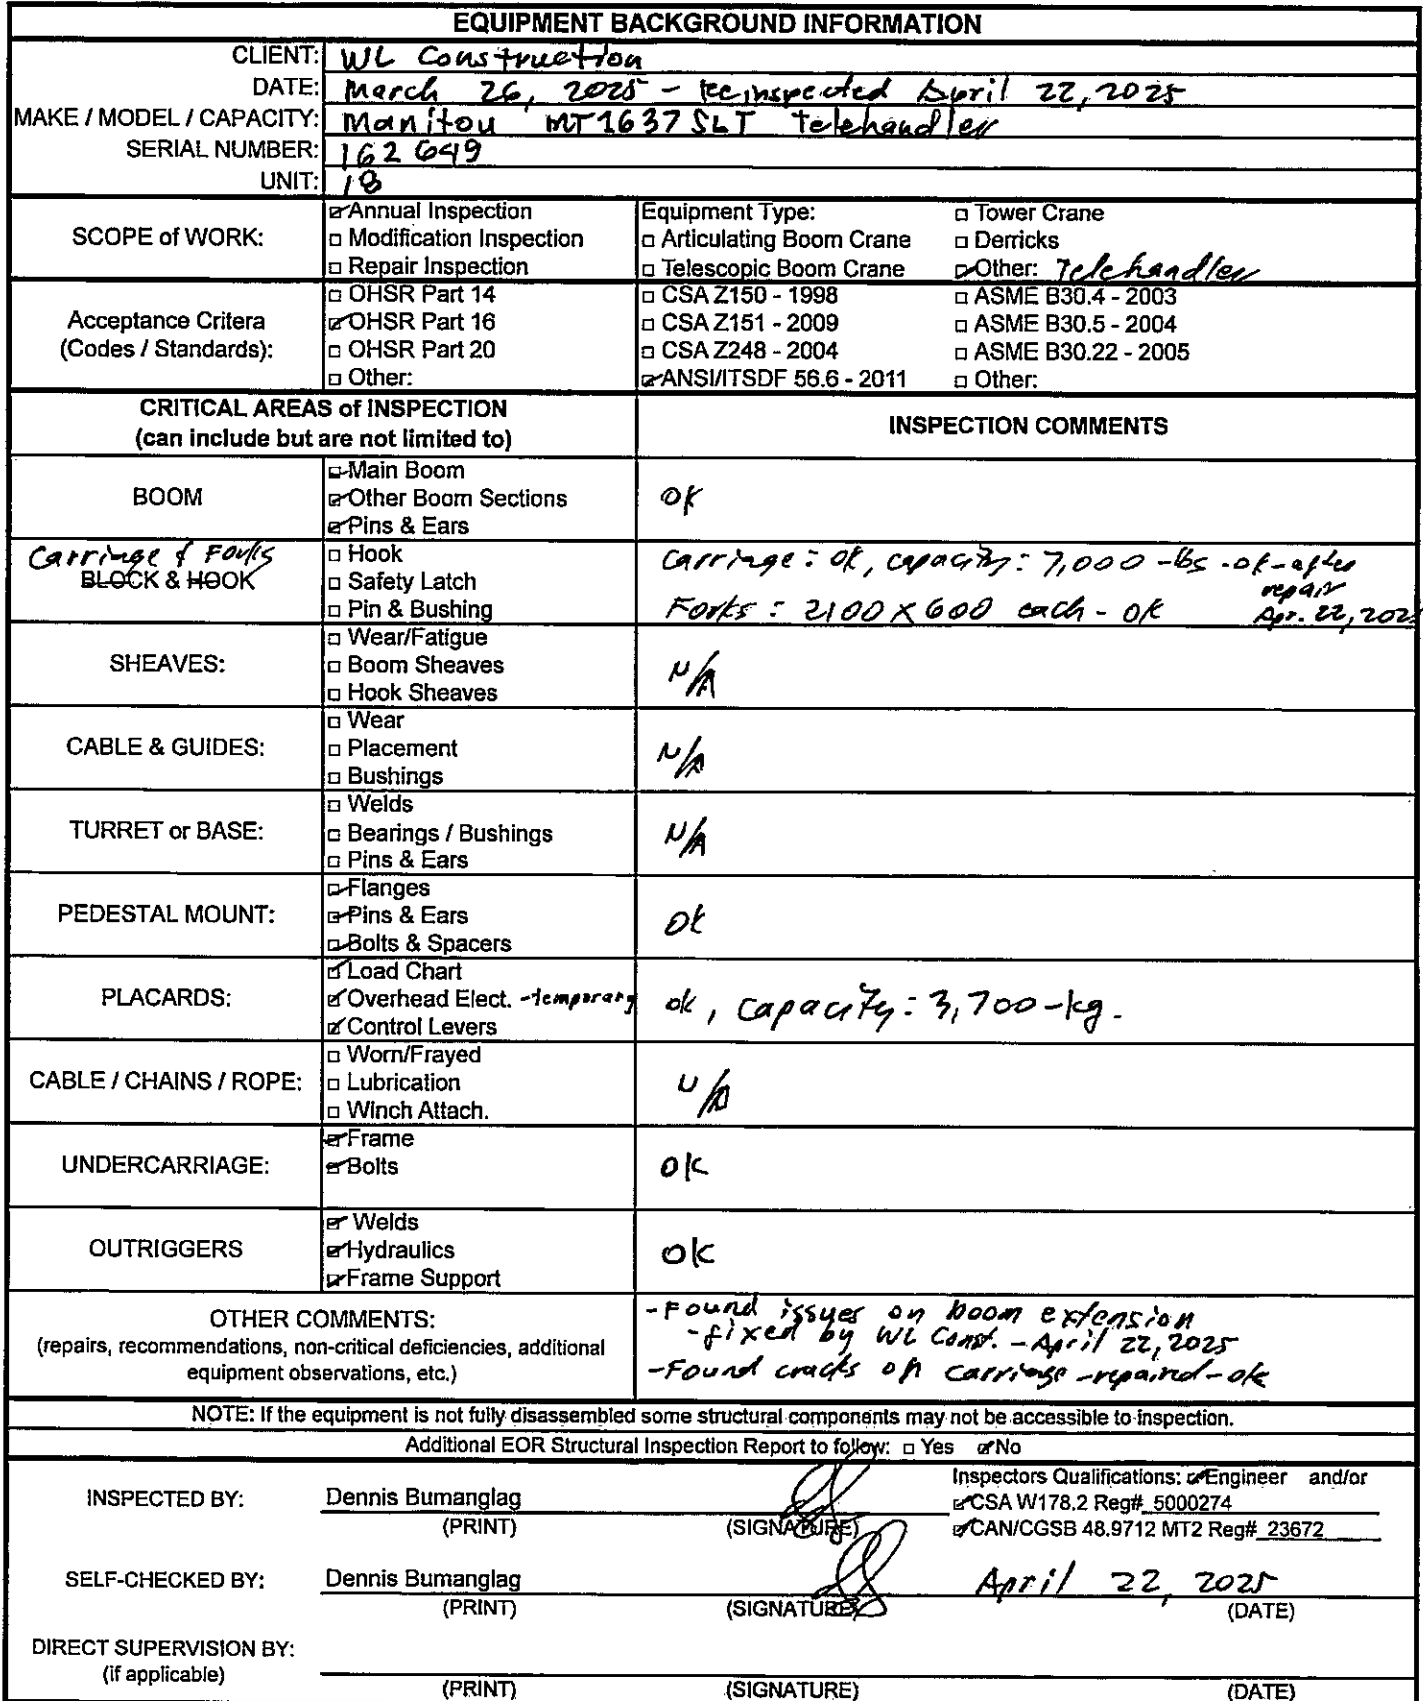 EQUIPMENT BACKGROUND INFORMATION
CLIENT: WL Construction
DATE: March 26, 2025 - Reinspected April 22, 2025
MAKE / MODEL / CAPACITY: Manitou MT1637 SLT Telehandler
SERIAL NUMBER: 162 649
UNIT: 18
SCOPE of WORK:
☑ Annual Inspection
□ Modification Inspection
□ Repair Inspection
Equipment Type:
□ Articulating Boom Crane
□ Telescopic Boom Crane
□ Tower Crane
□ Derricks
☑ Other: Telehandler
Acceptance Critera
(Codes / Standards):
□ OHSR Part 14
☑ OHSR Part 16
□ OHSR Part 20
□ Other:
□ CSA Z150 - 1998
□ CSA Z151 - 2009
□ CSA Z248 - 2004
☑ ANSI/ITSDF 56.6 - 2011
□ ASME B30.4 - 2003
□ ASME B30.5 - 2004
□ ASME B30.22 - 2005
□ Other:
CRITICAL AREAS of INSPECTION
(can include but are not limited to)
INSPECTION COMMENTS
BOOM
☑ Main Boom
☑ Other Boom Sections
☑ Pins & Ears
OK
Carriage & Forks
BLOCK & HOOK
□ Hook
□ Safety Latch
□ Pin & Bushing
Carriage: OK, capacity: 7,000 -lbs -ok-after
repair
Forks: 2100 X 600 each - OK Apr. 22, 2025
SHEAVES:
□ Wear/Fatigue
□ Boom Sheaves
□ Hook Sheaves
N/A
CABLE & GUIDES:
□ Wear
□ Placement
□ Bushings
N/A
TURRET or BASE:
□ Welds
□ Bearings / Bushings
□ Pins & Ears
N/A
PEDESTAL MOUNT:
☑ Flanges
☑ Pins & Ears
☑ Bolts & Spacers
OK
PLACARDS:
☑ Load Chart
☑ Overhead Elect. -temporary
☑ Control Levers
ok, capacity: 3,700-kg.
CABLE / CHAINS / ROPE:
□ Worn/Frayed
□ Lubrication
□ Winch Attach.
N/A
UNDERCARRIAGE:
☑ Frame
☑ Bolts
OK
OUTRIGGERS
☑ Welds
☑ Hydraulics
☑ Frame Support
OK
OTHER COMMENTS:
(repairs, recommendations, non-critical deficiencies, additional
equipment observations, etc.)
-Found issues on boom extension
-fixed by WL Const. - April 22, 2025
-Found cracks on carriage -repaired-ok
NOTE: If the equipment is not fully disassembled some structural components may not be accessible to inspection.
Additional EOR Structural Inspection Report to follow: □ Yes ☑ No
INSPECTED BY: Dennis Bumanglag
(PRINT) (SIGNATURE)
Inspectors Qualifications: ☑ Engineer and/or
☑ CSA W178.2 Reg# 5000274
☑ CAN/CGSB 48.9712 MT2 Reg# 23672
SELF-CHECKED BY: Dennis Bumanglag April 22, 2025
(PRINT) (SIGNATURE) (DATE)
DIRECT SUPERVISION BY:
(if applicable)
(PRINT) (SIGNATURE) (DATE)